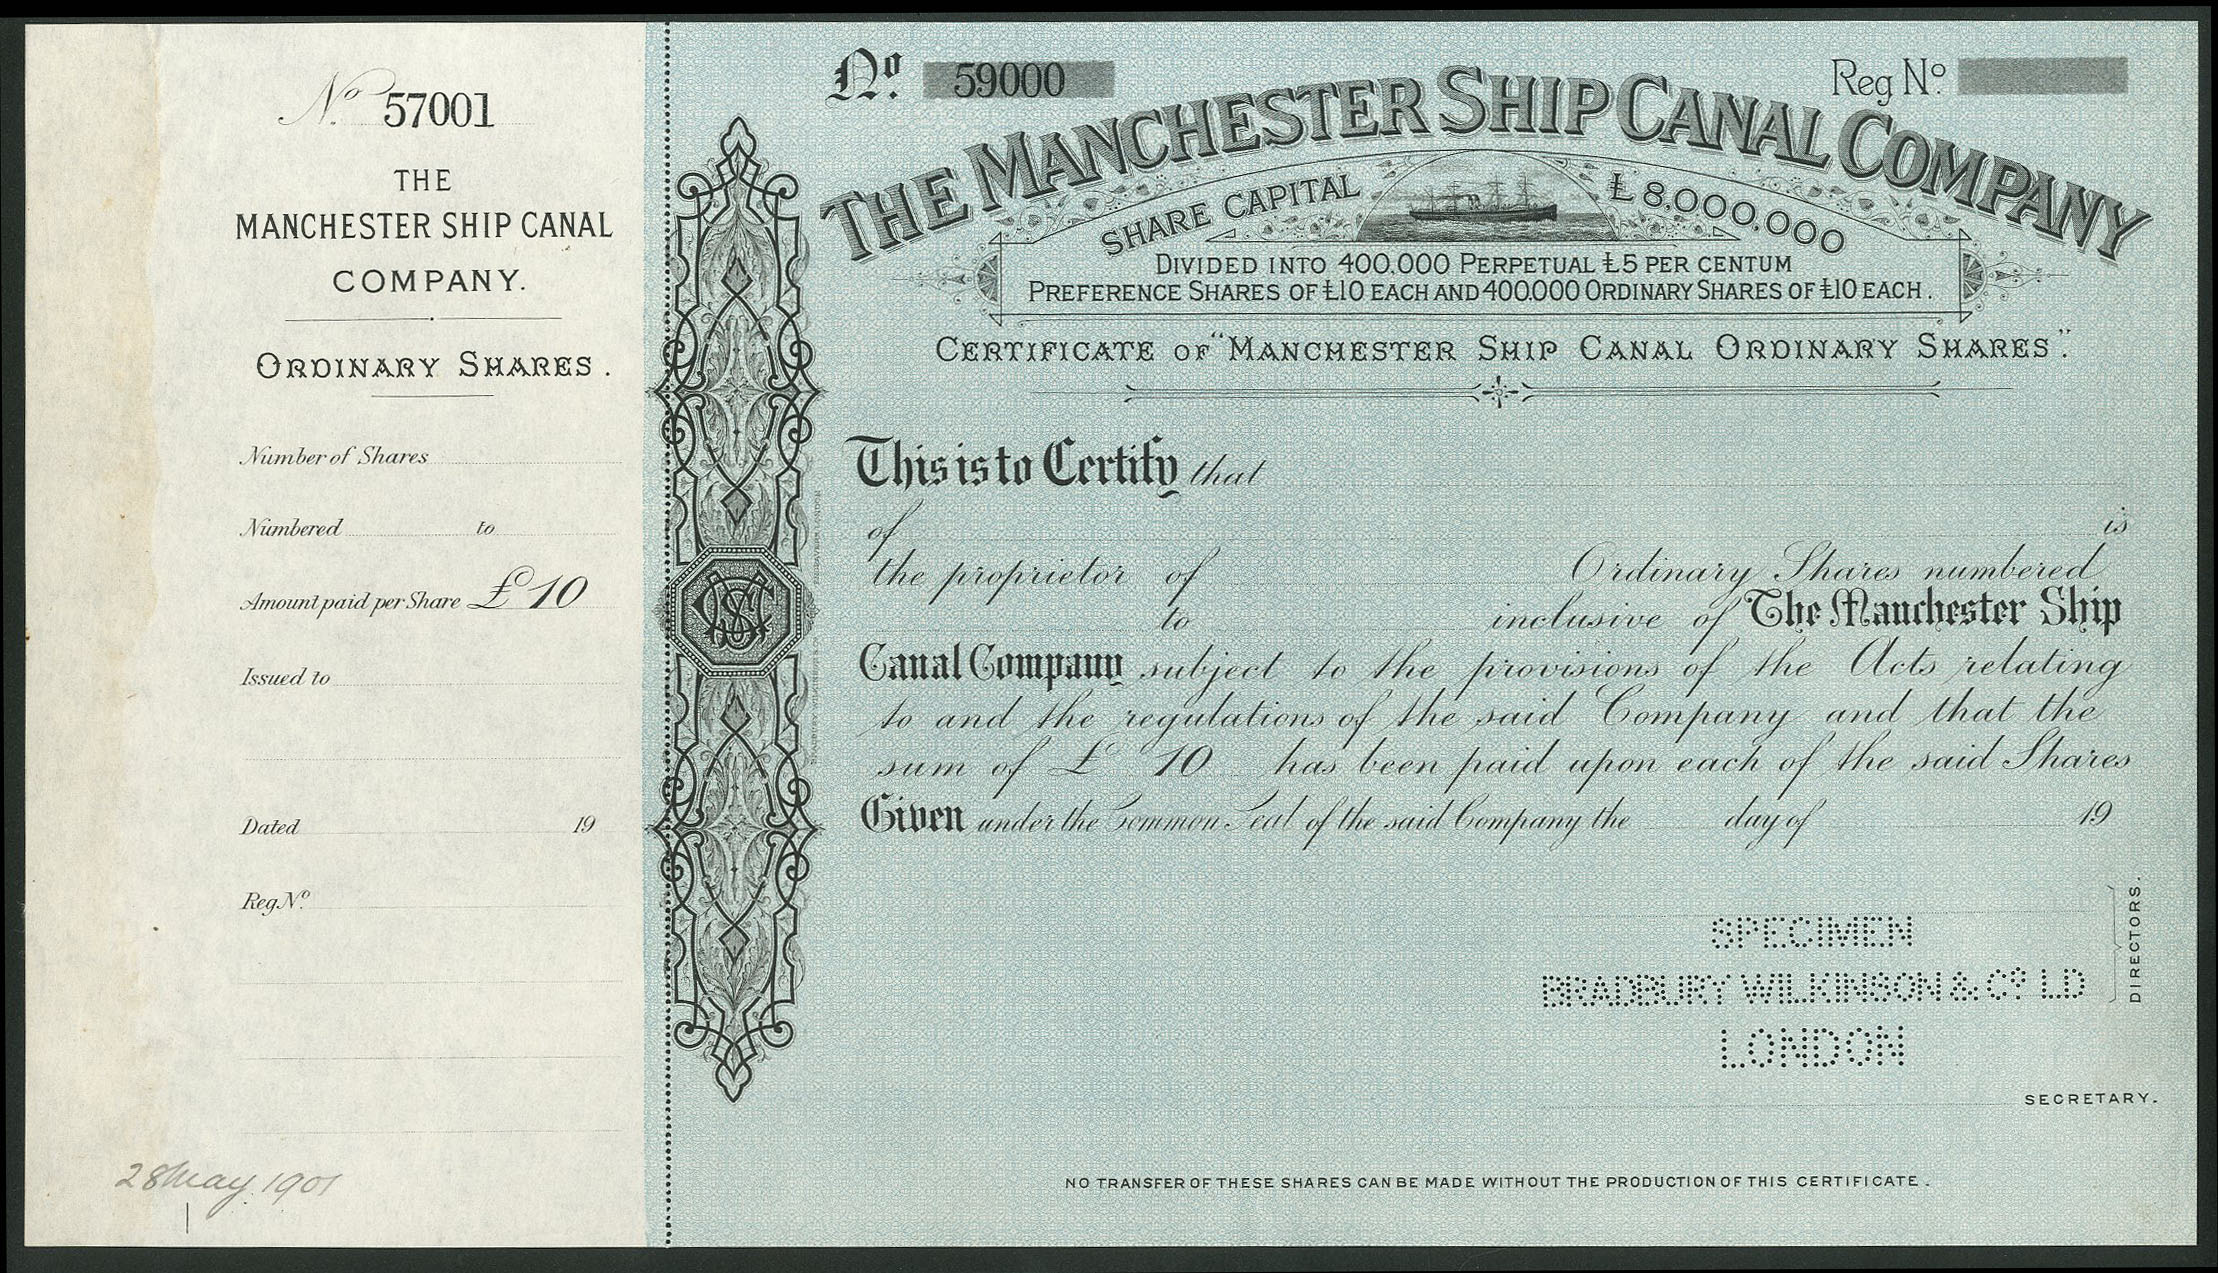 No. 57001
THE
MANCHESTER SHIP CANAL
COMPANY.
ORDINARY SHARES.
Number of Shares
Numbered to
Amount paid per Share £10
Issued to
Dated 19
Reg. No.
28 May. 1901
No. 59000
Reg No.
THE MANCHESTER SHIP CANAL COMPANY
SHARE CAPITAL £8,000,000
DIVIDED INTO 400,000 PERPETUAL £5 PER CENTUM
PREFERENCE SHARES OF £10 EACH AND 400,000 ORDINARY SHARES OF £10 EACH.
CERTIFICATE OF "MANCHESTER SHIP CANAL ORDINARY SHARES".
This is to Certify that
of is
the proprietor of Ordinary Shares numbered
to inclusive of The Manchester Ship
Canal Company subject to the provisions of the Acts relating
to and the regulations of the said Company and that the
sum of £ 10 has been paid upon each of the said Shares
Given under the Common Seal of the said Company the day of 19
DIRECTORS.
SPECIMEN
BRADBURY WILKINSON & Co. LD
LONDON
SECRETARY.
NO TRANSFER OF THESE SHARES CAN BE MADE WITHOUT THE PRODUCTION OF THIS CERTIFICATE.